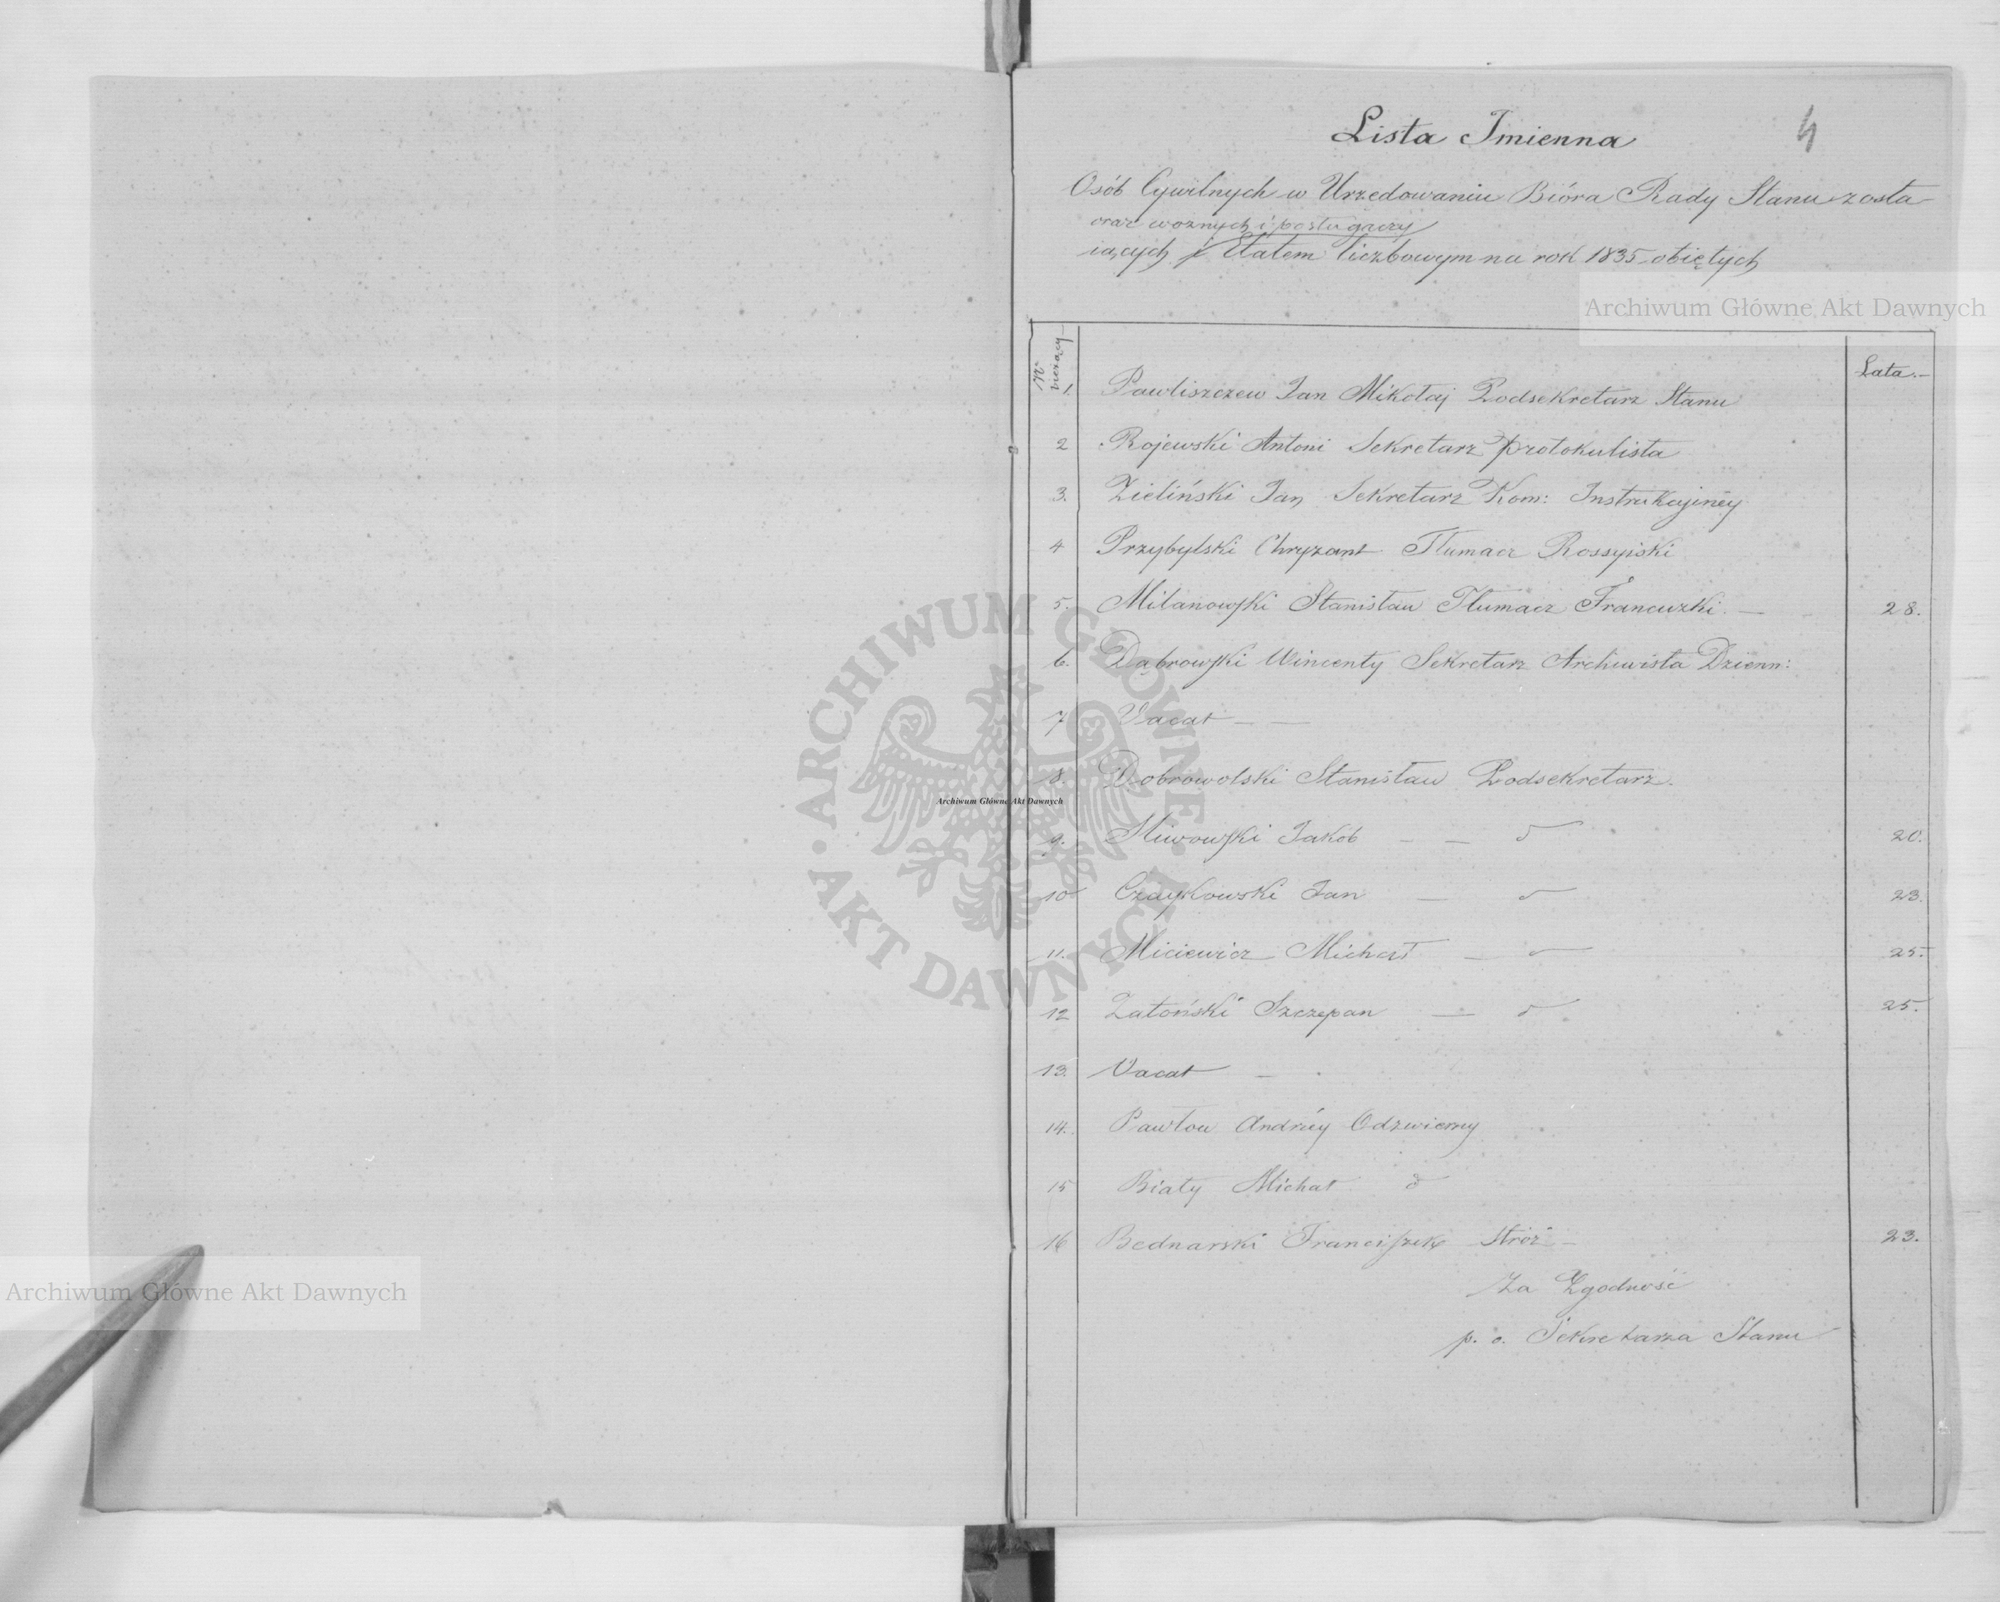 Lista Imienna
4
Osób Cywilnych w Urzedowaniu Bióra Rady Stanu zosta
oraz woznych i posługaczy
iących i Etatem liczbowym na rok 1835 obiętych
Archiwum Główne Akt Dawnych
N bieżący
Lata.
1. Pawliszczew Jan Mikołaj Podsekretarz Stanu
2 Rojewski Antoni Sekretarz protokulista
3. Zieliński Jan Sekretarz Kom: Instrukcyinéy
4 Przybylski Chryzant Tłumacz Rossyiski
5. Milanowski Stanisław Tłumacz Francuzki — 28.
6. Dąbrowski Wincenty Sekretarz Archiwista Dzienn:
7 Vacat — —
8. Dobrowolski Stanisław Podsekretarz.
Archiwum Główne Akt Dawnych
9. Jakób — — d 20.
10 Czaykowski Jan — d 23.
11. Miciewicz Michał — d 25.
12 Zatoński Szczepan — d 25.
13. Vacat —
14. Pawłow Andréy Odzwierny
15 Biały Michał d
16 Bednarski Franciszek Stróż — 23.
Za Zgodność
p. o. Sekretarza Stanu
Archiwum Główne Akt Dawnych
ARCHIWUM GŁÓWNE AKT DAWNYCH